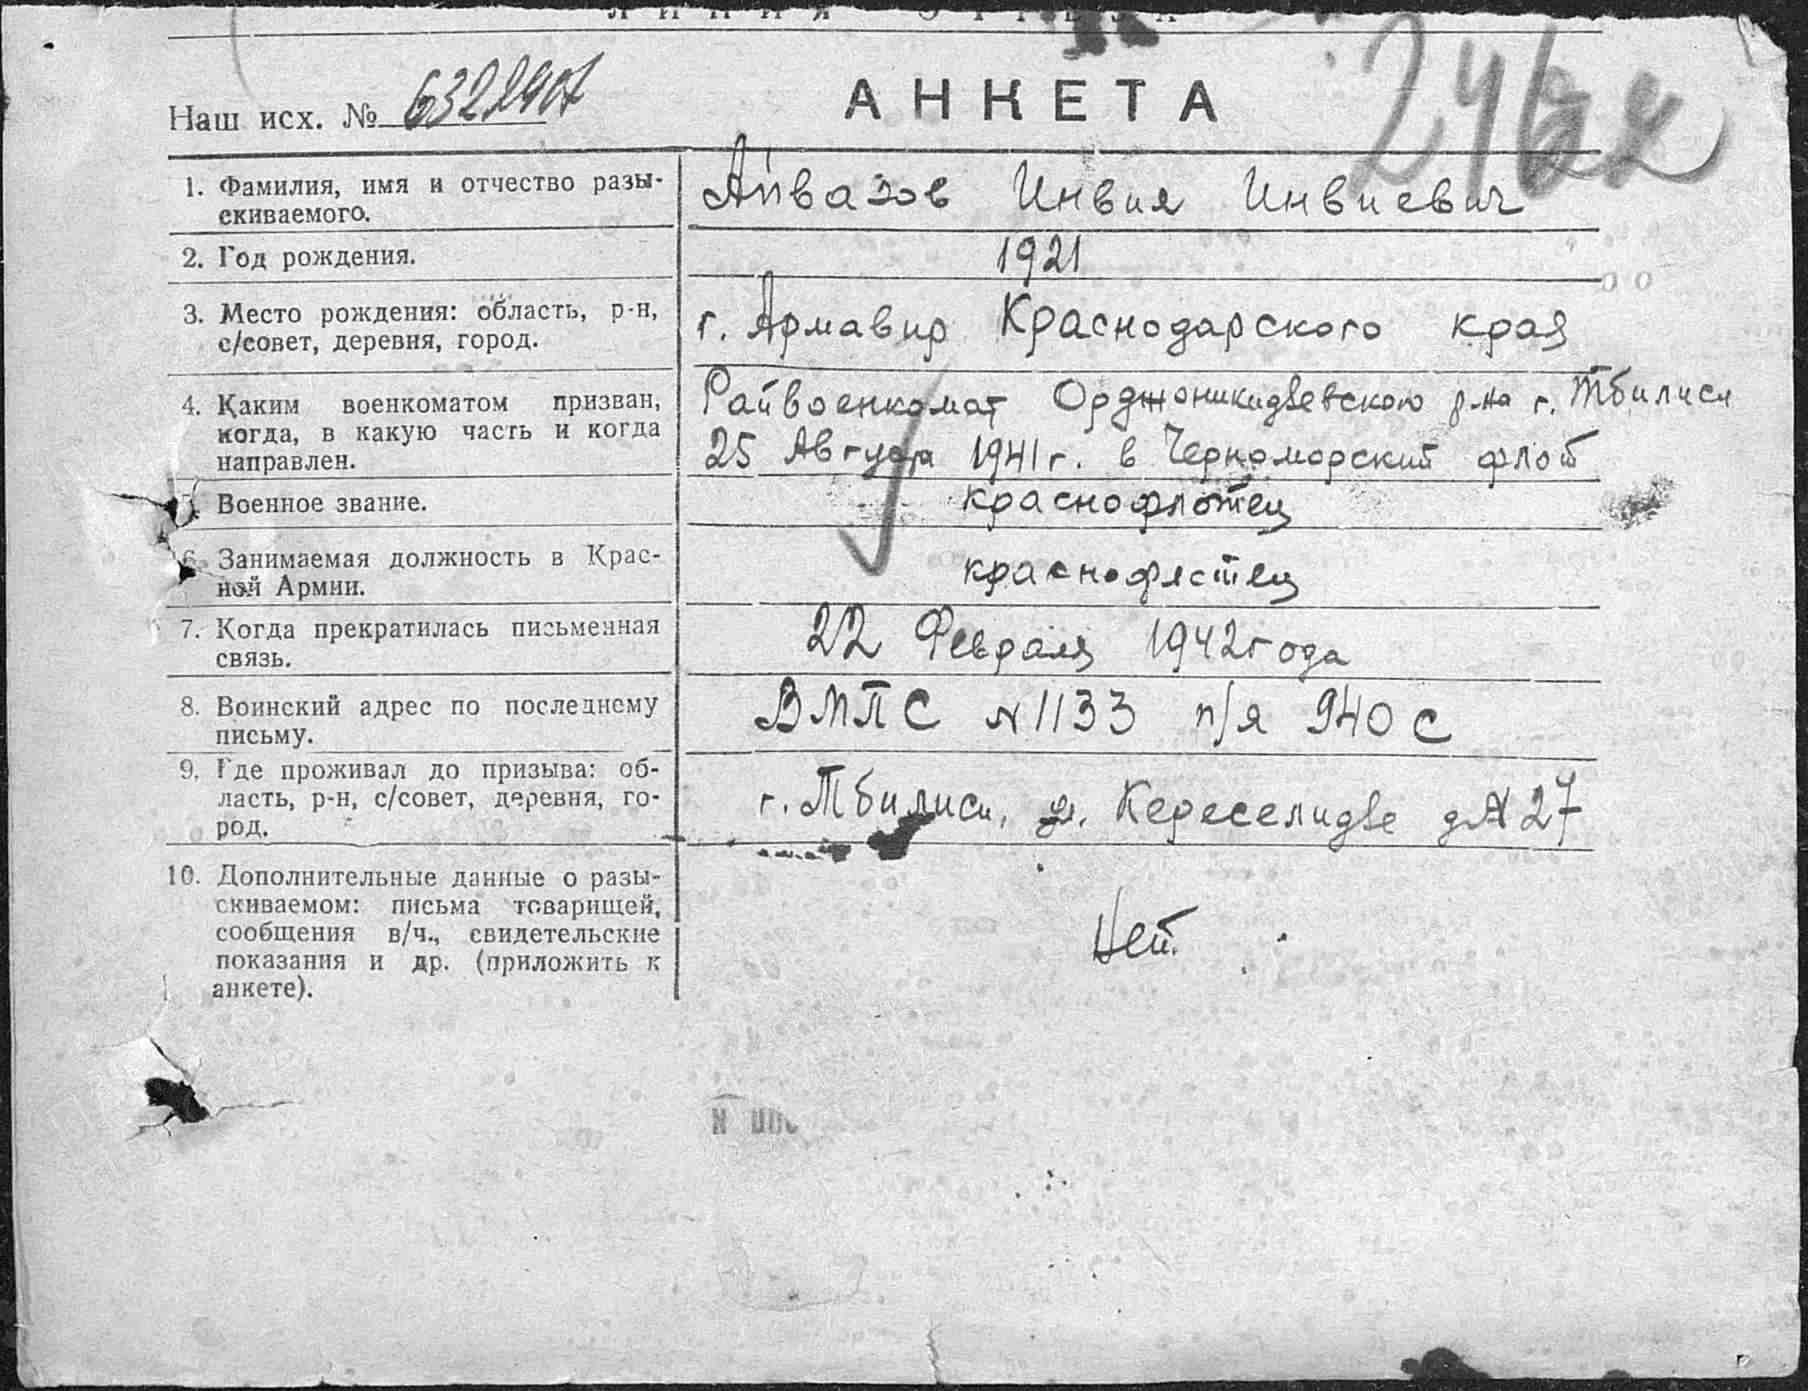 ЛИНИЯ ОТРЕЗА
Наш исх. №
АНКЕТА
1. Фамилия, имя и отчество разы-
скиваемого.
Айвазов Инвия Инвиевич
2. Год рождения.
1921
3. Место рождения: область, р-н,
с/совет, деревня, город.
г. Армавир Краснодарского края
4. Каким военкоматом призван,
когда, в какую часть и когда
направлен.
Райвоенкомат Орджоникидзевского р-на г. Тбилиси
25 Августа 1941 г. в Черноморский флот
5. Военное звание.
краснофлотец
6. Занимаемая должность в Крас-
ной Армии.
краснофлотец
7. Когда прекратилась письменная
связь.
22 Февраля 1942 года
8. Воинский адрес по последнему
письму.
ВМПС №1133 п/я 940 с
9. Где проживал до призыва: об-
ласть, р-н, с/совет, деревня, го-
род.
г. Тбилиси, ул. Кереселидзе д№ 27
10. Дополнительные данные о разы-
скиваемом: письма товарищей,
сообщения в/ч., свидетельские
показания и др. (приложить к
анкете).
Нет.